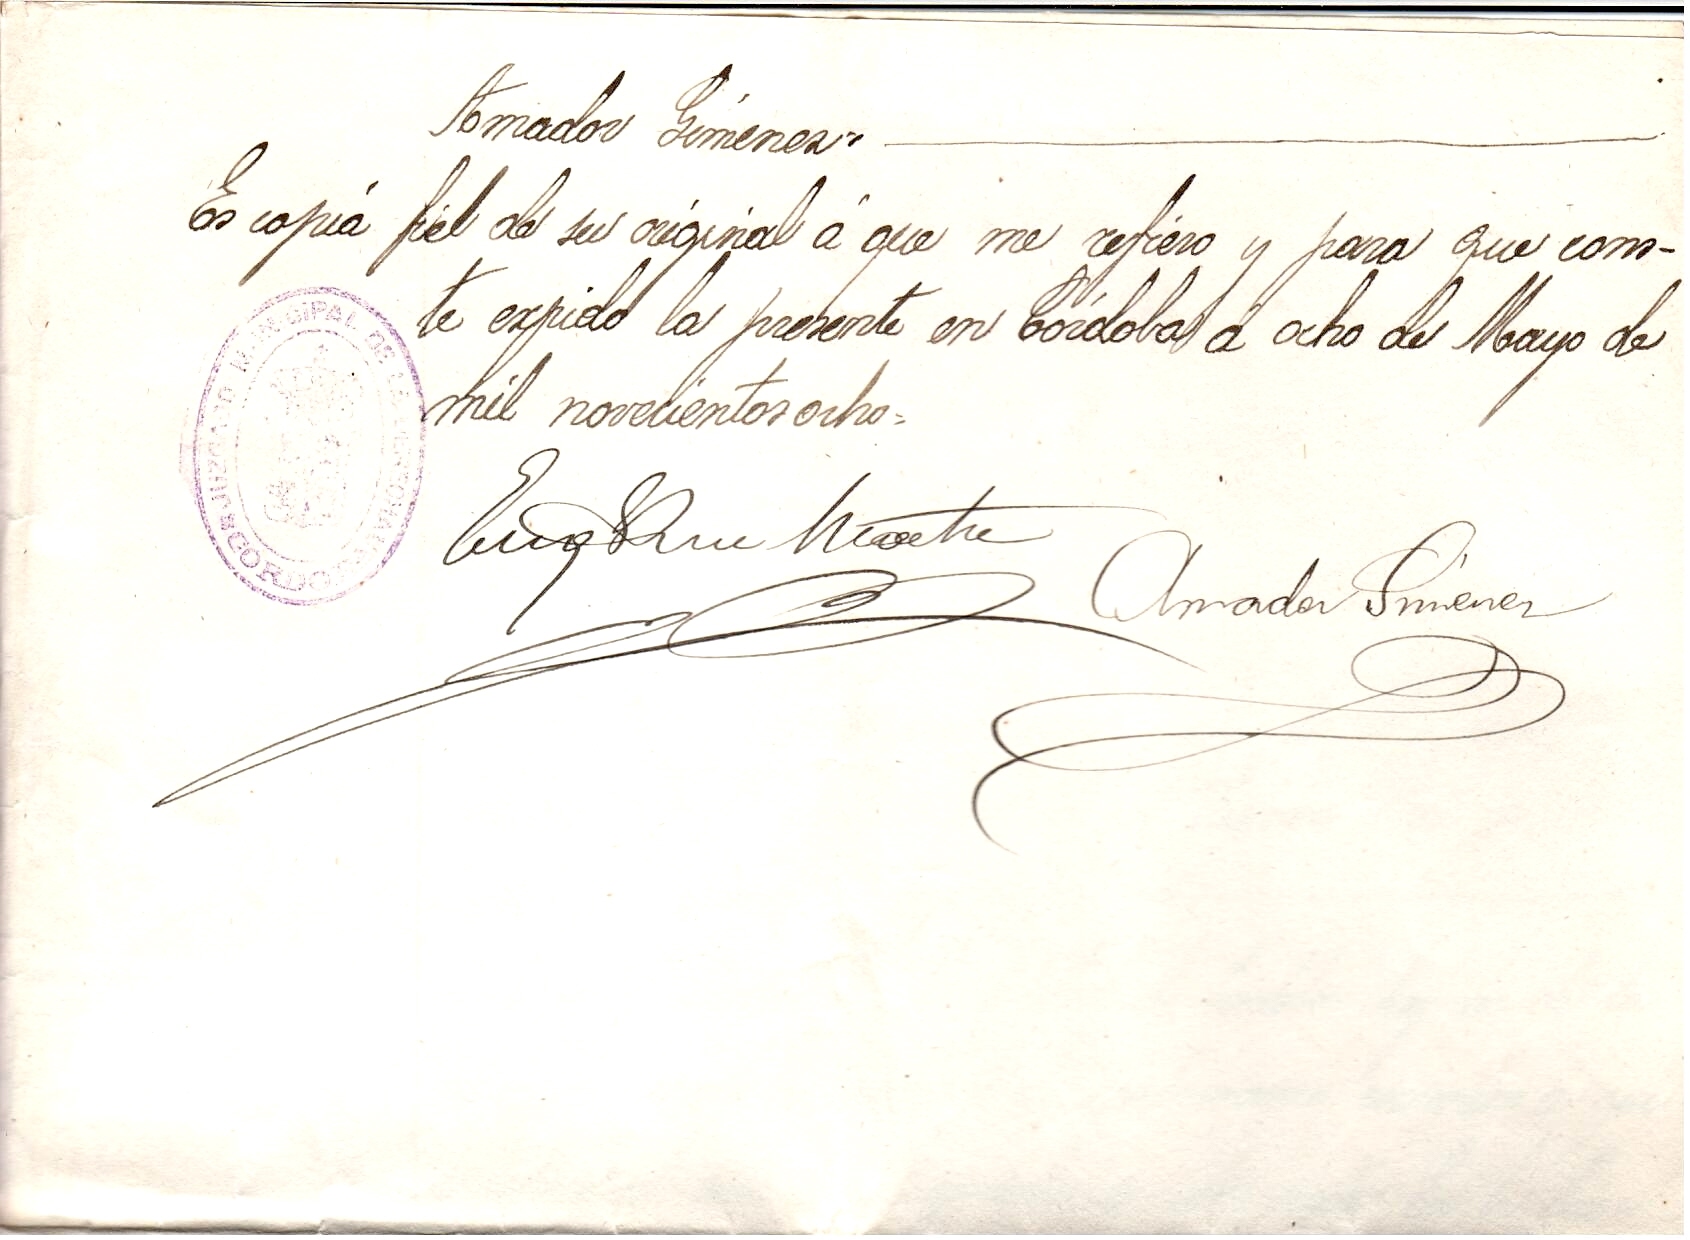 Amador Giménez.=
Es copiá fiel de su original á que me refiero y para que cons-
te expido la presente en Córdoba á ocho de Mayo de
mil novecientos ocho=
JUZGADO MUNICIPAL DE LA
CORDOBA
Amador Giménez